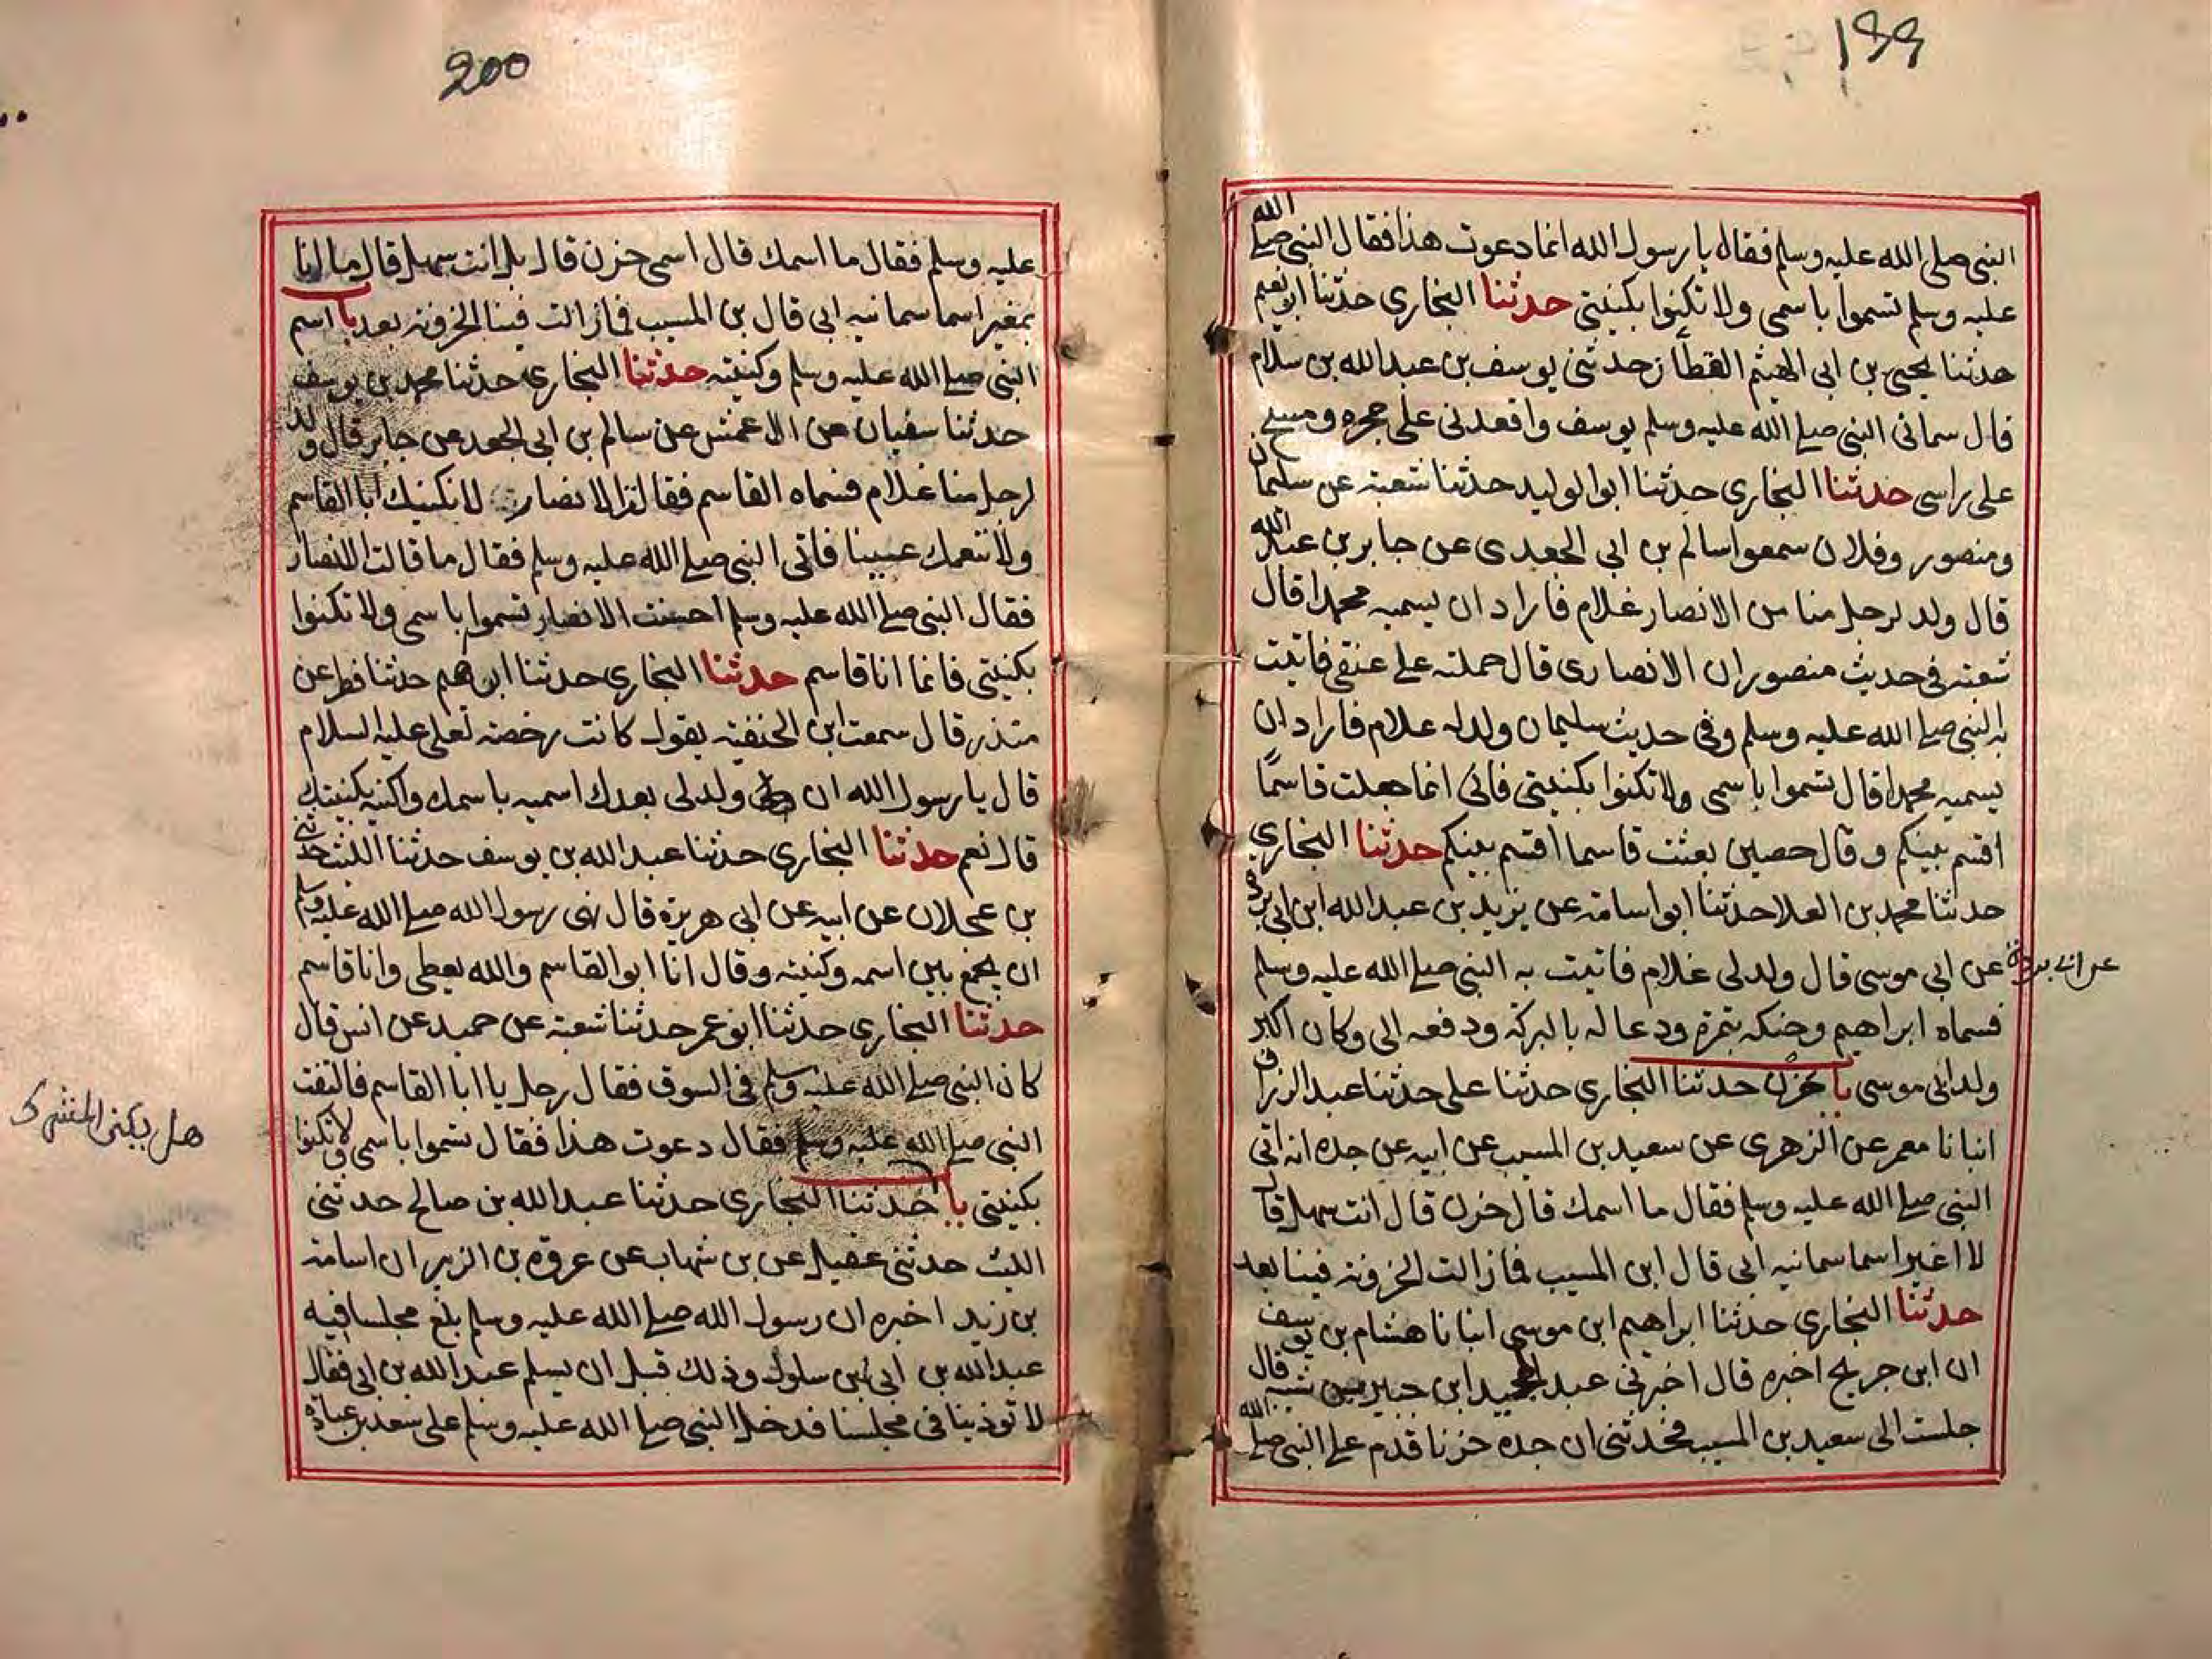 199
النبى صلى الله عليه وسلم فقال يا رسول الله انما دعوت هذا فقال النبى صلى الله
عليه وسلم تسموا باسمى ولا تكنوا بكنيتى حدثنا البخارى حدثنا ابو نعيم
حدثنا يحيى بن ابى الهيثم القطان حدثنى يوسف بن عبد الله بن سلام
قال سمانى النبى صلى الله عليه وسلم يوسف واقعدنى على حجره ومسح
على راسى حدثنا البخارى حدثنا ابو الوليد حدثنا شعبة عن سليمان
ومنصور وفلان سمعوا سالم بن ابى الجعدى عن جابر بن عبد الله
قال ولد لرجل منا من الانصار غلام فاراد ان يسميه محمدا قال
شعبة فى حديث منصور ان الانصارى قال حملته على عنقى فاتيت
به النبى صلى الله عليه وسلم وفى حديث سليمان ولد له غلام فاراد ان
يسميه محمدا قال تسموا باسمى ولا تكنوا بكنيتى فانى انما جعلت قاسمًا
اقسم بينكم وقال حصين بعثت قاسما اقسم بينكم حدثنا البخارى
حدثنا محمد بن العلا حدثنا ابو اسامة عن بريد بن عبد الله ابن ابى بردة
عن ابى بردة
عن ابى موسى قال ولد لى غلام فاتيت به النبى صلى الله عليه وسلم
فسماه ابراهيم وحنكه بتمرة ودعا له بالبركة ودفعه الى وكان اكبر
ولد ابى موسى با حزن حدثنا البخارى حدثنا على حدثنا عبد الرزاق
انبانا معمر عن الزهرى عن سعيد بن المسيب عن ابيه عن جده انه اتى
النبى صلى الله عليه وسلم فقال ما اسمك قال حزن قال انت سهل قال
لا اغير اسما سمانيه ابى قال ابن المسيب فما زالت الحزونة فينا بعد
حدثنا البخارى حدثنا ابراهيم ابن موسى انبانا هشام بن يوسف
ان ابن جريح اخبره قال اخبرنى عبد الحميد ابن جبير بن شيبه قال
جلست الى سعيد بن المسيب فحدثنى ان جده حزنا قدم على النبى صلى الله
200
عليه وسلم فقال ما اسمك قال اسمى حزن قال بل انت سهل قال ما انا
بمغير اسما سمانيه ابى قال بن المسيب فما زالت فينا الحزونة بعد با اسم
النبى صلى الله عليه وسلم وكنيته حدثنا البخارى حدثنا محمد بن يوسف
حدثنا سفيان عن الاعمش عن سالم بن ابى الجعد عن جابر قال ولد
لرجل منا غلام فسماه القاسم فقالت الانصار لا نكنيك ابا القاسم
ولا ننعمك عينا فاتى النبى صلى الله عليه وسلم فقال ما قالت الانصار
فقال النبى صلى الله عليه وسلم احسنت الانصار تسموا باسمى ولا تكنوا
بكنيتى فانما انا قاسم حدثنا البخارى حدثنا ابو نعيم حدثنا فطر عن
منذر قال سمعت ابن الحنفية يقول كانت رخصة لعلى عليه السلام
قال يا رسول الله ان ولد لى بعدك اسميه باسمك واكنيه بكنيتك
قال نعم حدثنا البخارى حدثنا عبد الله بن يوسف حدثنا الليث حدثنى
بن عجلان عن ابيه عن ابى هريرة قال نهى رسول الله صلى الله عليه وسلم
ان يجمع بين اسمه وكنيته وقال انا ابو القاسم والله يعطى وانا قاسم
حدثنا البخارى حدثنا ابو عمر حدثنا شعبة عن حميد عن انس قال
كان النبى صلى الله عليه وسلم فى السوق فقال رجل يا ابا القاسم فالتفت
النبى صلى الله عليه وسلم فقال دعوت هذا فقال تسموا باسمى ولا تكنوا
هل يكنى المشرك
بكنيتى با حدثنا البخارى حدثنا عبد الله بن صالح حدثنى
الليث حدثنى عقيل عن بن شهاب عن عروة بن الزبير ان اسامة
بن زيد اخبره ان رسول الله صلى الله عليه وسلم بلغ مجلسا فيه
عبد الله بن ابى بن سلول وذلك قبل ان يسلم عبد الله بن ابى فقال
لا توذينا فى مجلسنا فدخل النبى صلى الله عليه وسلم على سعد بن عبادة